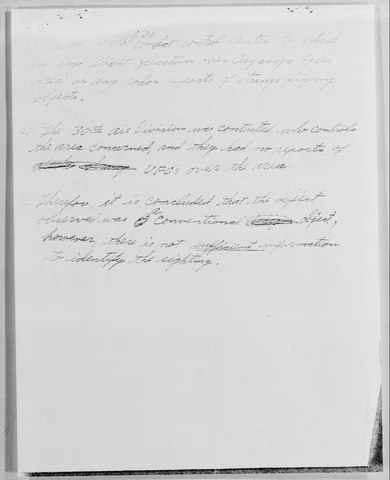 control center to check
on any flight activities over Cuyahoga Falls
area or any radar reports of strange flying
objects.
The 30th Air Division was contacted, who controls
the area concerned, and they had no reports of
UFO's over the area.
Therefore, it is concluded that the object
observed was a Conventional object,
however, there is not sufficient information
to identify the sighting.